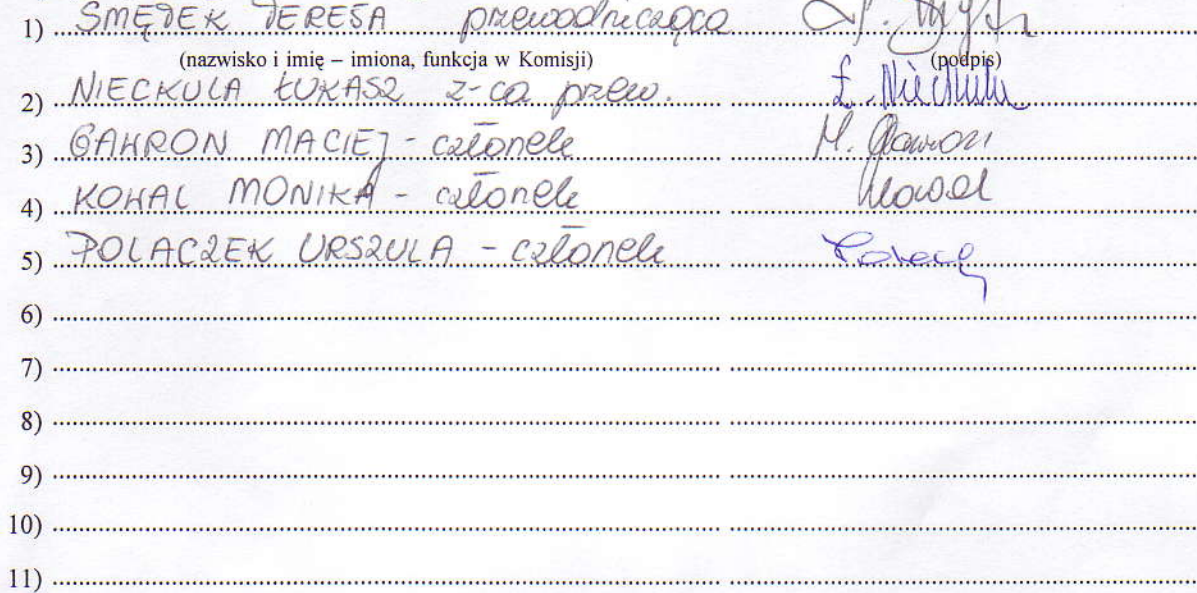 1) SMĘTEK TERESA przewodnicząca
(nazwisko i imię – imiona, funkcja w Komisji) (podpis)
2) NIECKULA ŁUKASZ z-ca przew. Ł. Nieckula
3) GAWRON MACIEJ - członek M. Gawron
4) KOWAL MONIKA - członek Kowal
5) POLACZEK URSZULA - członek
6)
7)
8)
9)
10)
11)